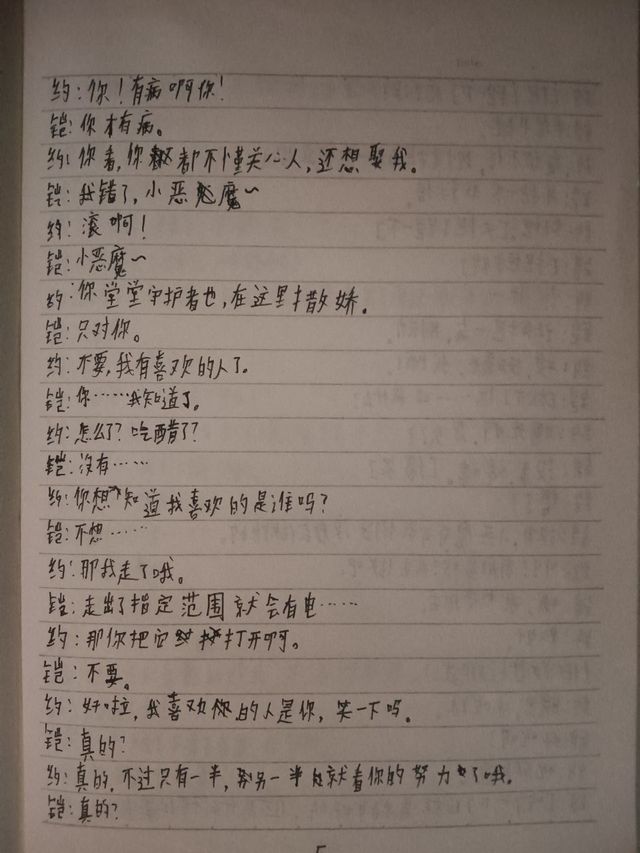 约:你!有病啊你!
铠:你才有病。
约:你看,你都不懂关心人,还想娶我。
铠:我错了,小恶魔~
约:滚啊!
铠:小恶魔~
约:你堂堂守护者也,在这里撒娇。
铠:只对你。
约:不要,我有喜欢的人了。
铠:你……我知道了。
约:怎么了?吃醋了?
铠:没有……
约:你想知道我喜欢的是谁吗?
铠:不想……
约:那我走了哦。
铠:走出了指定范围就会有电……
约:那你把它打开啊。
铠:不要。
约:好啦,我喜欢的人是你,笑一下吗。
铠:真的?
约:真的,不过只有一半,另一半就看你的努力了哦。
铠:真的?
5